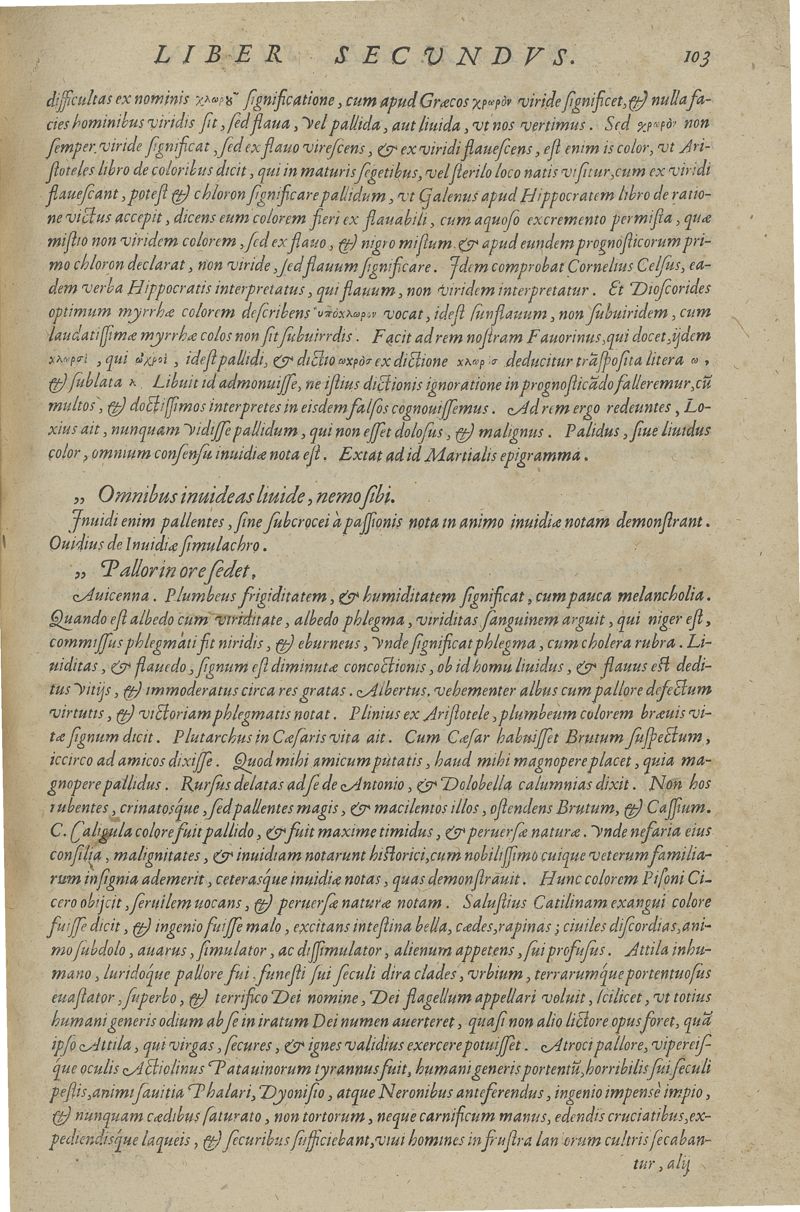 LIBER SECVNDVS. 103
difficultas ex nominis χλωρȣ͂ significatione, cum apud Græcos χρωρὸν viride significet, & nulla fa-
cies hominibus viridis sit, sed flaua, vel pallida, aut liuida, vt nos vertimus. Sed χρωρὸν non
semper viride significat, sed ex flauo virescens, & ex viridi flauescens, est enim is color, vt Ari-
stoteles libro de coloribus dicit, qui in maturis segetibus, vel sterilo loco natis visitur, cum ex viridi
flauescant, potest & chloron significare pallidum, vt Galenus apud Hippocratem libro de ratio-
ne victus accepit, dicens eum colorem fieri ex flauabili, cum aquoso excremento permista, quæ
mistio non viridem colorem, sed ex flauo, & nigro mistum & apud eundem prognosticorum pri-
mo chloron declarat, non viride, sed flauum significare. Idem comprobat Cornelius Celsus, ea-
dem verba Hippocratis interpretatus, qui flauum, non viridem interpretatur. Et Dioscorides
optimum myrrhæ colorem describens ὑπόχλωρον vocat, idest sunflauum, non subuiridem, cum
laudatissimæ myrrhæ colos non sit subuirrdis. Facit ad rem nostram Fauorinus, qui docet, ijdem
χλωροὶ, qui ὠχροὶ, idest pallidi, & dictio ωχρὸσ ex dictione χλωρὸσ deducitur trãsposita litera ω,
& sublata λ. Libuit id admonuisse, ne istius dictionis ignoratione in prognosticãdo falleremur, cũ
multos, & doctissimos interpretes in eisdem falsos cognouissemus. Ad rem ergo redeuntes, Lo-
xius ait, nunquam vidisse pallidum, qui non esset dolosus, & malignus. Palidus, siue liuidus
color, omnium consensu inuidiæ nota est. Extat ad id Martialis epigramma.
„ Omnibus inuideas liuide, nemo sibi.
Inuidi enim pallentes, sine subcrocei à passionis nota in animo inuidiæ notam demonstrant.
Ouidius de Inuidiæ simulachro.
„ Pallor in ore sedet,
Auicenna. Plumbeus frigiditatem, & humiditatem significat, cum pauca melancholia.
Quando est albedo cum viriditate, albedo phlegma, viriditas sanguinem arguit, qui niger est,
commissus phlegmati fit niridis, & eburneus, vnde significat phlegma, cum cholera rubra. Li-
uiditas, & flauedo, signum est diminutæ concoctionis, ob id homu liuidus, & flauus est dedi-
tus vitijs, & immoderatus circa res gratas. Albertus, vehementer albus cum pallore defectum
virtutis, & victoriam phlegmatis notat. Plinius ex Aristotele, plumbeum colorem bræuis vi-
tæ signum dicit. Plutarchus in Cæsaris vita ait. Cum Cæsar habuisset Brutum suspectum,
iccirco ad amicos dixisse. Quod mihi amicum putatis, haud mihi magnopere placet, quia ma-
gnopere pallidus. Rursus delatas ad se de Antonio, & Dolobella calumnias dixit. Non hos
rubentes, crinatosque, sed pallentes magis, & macilentos illos, ostendens Brutum, & Cassium.
C. Caligula colore fuit pallido, & fuit maxime timidus, & peruersæ naturæ. Vnde nefaria eius
consilia, malignitates, & inuidiam notarunt historici, cum nobilissimo cuique veterum familia-
rum insignia ademerit, ceterasque inuidiæ notas, quas demonstrauit. Hunc colorem Pisoni Ci-
cero obijcit, seruilem uocans, & peruersæ naturæ notam. Salustius Catilinam exangui colore
fuisse dicit, & ingenio fuisse malo, excitans intestina bella, cædes, rapinas; ciuiles discordias, ani-
mo subdolo, auarus, simulator, ac dissimulator, alienum appetens, sui profusus. Attila inhu-
mano, luridoque pallore fui, funesti sui seculi dira clades, vrbium, terrarumque portentuosus
euastator, superbo, & terrifico Dei nomine, Dei flagellum appellari voluit, scilicet, vt totius
humani generis odium ab se in iratum Dei numen auerteret, quasi non alio lictore opus foret, quã
ipso Attila, qui virgas, secures, & ignes validius exercere potuisset. Atroci pallore, vipereis-
que oculis Actiolinus Patauinorum tyrannus fuit, humani generis portentũ, horribilis sui seculi
pestis, animi sauitia Phalari, Dyonisio, atque Neronibus anteferendus, ingenio impensè impio,
& nunquam cædibus saturato, non tortorum, neque carnificum manus, edendis cruciatibus, ex-
pediendisque laqueis, & securibus sufficiebant, viui homines in frustra laniorum cultris secaban-
tur, alij